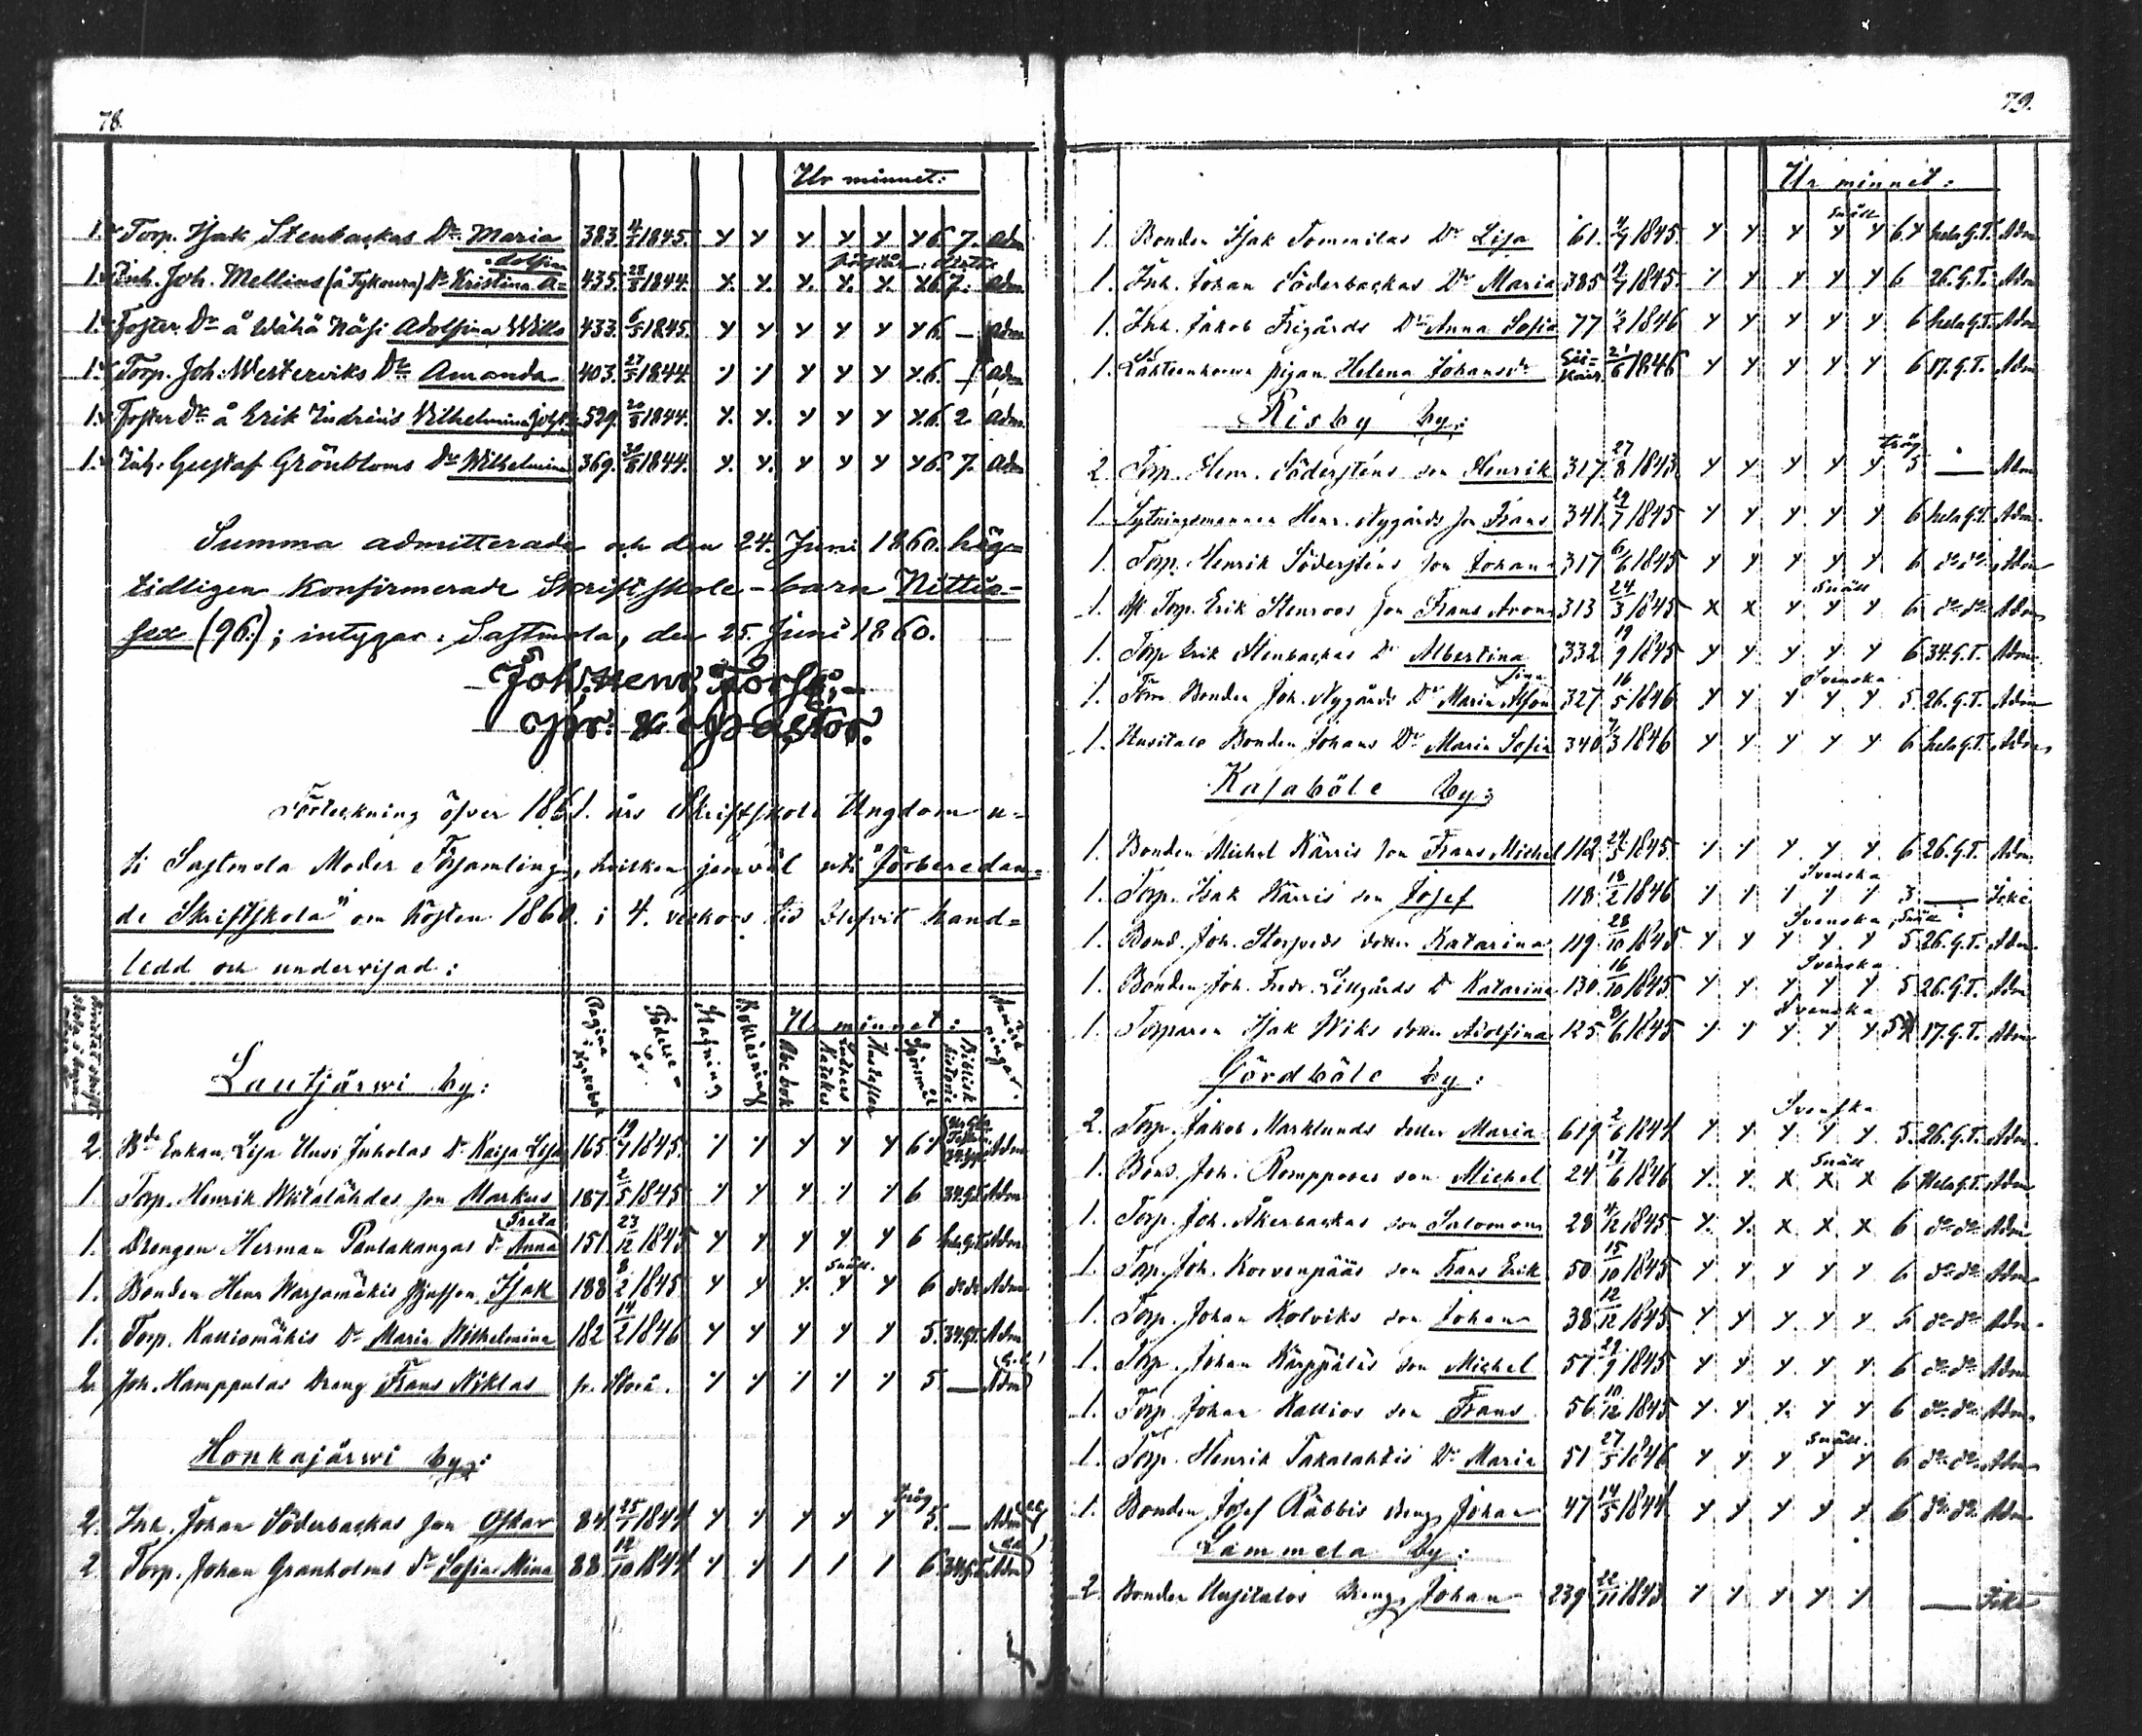 78.
Ur minnet:
1. Torp. Isak Stenbackas Dr Maria 383. 1845. y y y y y y 6. 7. Adm
Adolfina
1. Inh. Joh. Mellins (å Tykoura) Dr Kristina A= 435. 28/8 1844. y. y. y. y. y. y. 6. 7. Adm
1. Foster Dr å Wähä Näsi Adolfina Wilh 433. 6/5 1845. y y y y y y 6. — Adm
1. Torp. Joh. Westerviks Dr Amanda 403. 27/5 1844. y y y y y y. 6. — Adm
1. Foster Dr å Erik Indreius Wilhelmina 529. 20/8 1844. y. y. y y y y. 6. 2 Adm.
1. Inh. Gustaf Grönbloms Dr Wilhelmina 369. 30/8 1844. y. y. y y y y 6. 7. Adm
Summa admitterade och den 24. Juni 1860. hög=
tidligen Konfirmerade Skriftskole-barn Nittio-
sex (96.); intygar. Sastmola, den 25. Juni 1860.
Joh. Henr. Forss,
Pr. & Pastor.
Förteckning öfver 1861. års Skriftskole Ungdom u=
ti Sastmola Moder Församling, hvilken jemväl uti "förberedan=
de Skriftskola" om hösten 1860. i 4. veckors tid blifvit hand=
ledd och undervisad:
Lautjärwi by:
Pagina i Kyrkobok
Födelse-år.
Stafning
Bokläsning
Ur minnet:
Abc bok
Luthers Katekes
Hustaflan
Spörsmål
Biblisk historie
Anmärkningar.
2. Bde Enkan Lisa Uusi Juholas Dr Kaisa Lisa 165. 19/7 1845. y y y y y 6 y Adm
1. Torp. Henrik Mitälähdes son Markus 187. 2/5 1845 y y y y y 6 34.G.T. Adm
Greta
1. Drengen Herman Pentakangas dr Anna 151. 23/12 1845 y y y y y 6 hela G.T. Adm
Snäll.
1. Bonden Henr Warjamäkis Isak 188 8/2 1845 y y y. y y 6 do do Adm
1. Torp. Kalliomäkis Dr Maria Wilhelmina 182 14/2 1846 y y y y y 5. 34.G.T. Adm
2. Joh. Hamppulas Dreng Frans Niklas y y y y y 5. — Adm
Honkajärwi by:
trög
2. Inh. Johan Söderbackas son Oskar 84. 25/7 1844 y y y y y 5. — Adm
2. Torp. Johan Granholms dr Sofia Mina 88. 12/10 1844 y y y y y 6. 34.G.T. Adm
79.
Ur minnet:
Snäll
1. Bonden Isak Tommilas Dr Lisa 61. 4/9 1845. y y y y y 6. y hela G.T. Adm
1. Inh. Johan Söderbackas Dr Maria 385 19/9 1845. y y y y y 6 26.G.T. Adm
1. Inh. Jakob Frigårds Dr Anna Sofia 77 1846 y y y y y 6 hela G.T. Adm
1. Lähteenkorwa pigan Helena Johansdr 21/6 1846 y y y y y 6 17.G.T. Adm
Risby by:
trög
2. Torp. Henr. Söderstens son Henrik 317. 27/8 1843. y y y y y 5 — Adm
1. Sytningsmannen Henr. Nygårds son Frans 341. 29/7 1845 y y y y y 6 hela G.T. Adm.
1. Torp. Henrik Söderstens son Johan 317 6/6 1845 y y y y y 6 do do Adm
Snäll
1. Torp. Erik Stenroos son Frans Aron 313 24/3 1845 x x y y y 6 do do Adm
1. Torp Erik Stenbackas Dr Albertina 332 19/9 1845 y y y y y 6 34.G.T. Adm
Svenska
1. Bonden Joh. Nygårds Dr Maria Alfon sina 327 16/5 1846 y y y y y 5. 26.G.T. Adm
1. Uusitalo Bonden Johans Dr Maria Sofia 340 7/3 1846 y y y y y 6 hela G.T. Adm
Kasaböle by:
1. Bonden Michel Kärris son Frans Michel 112 24/5 1845. y y y y y 6 26.G.T. Adm.
Svenska
1. Torp. Isak Kärris son Josef 118. 18/2 1846 y y y y y 3. — Icke
Svenska, Snäll
1. Bond. Joh. Storsveds dotter Katarina 119. 28/10 1845. y y y y y 5 26.G.T. Adm.
Svenska
1. Bonden Joh. Fredr. Lillgårds Dr Katarina 130. 16/10 1845. y y y y y 5 26.G.T. Adm
Svenska
1. Torparen Isak Wiks dotter Adolfina 125 8/6 1845 y y y y y 5 17.G.T. Adm
Gördböle by:
Svenska
2. Torp. Jakob Marklunds dotter Maria 619 2/6 1844 y y y y y 5. 26.G.T. Adm
Snäll
1. Bond. Joh. Rompposes son Michel 24 17/6 1846 y. y. x x x 6 Hela G.T. Adm
1. Torp. Joh. Åkerbackas son Salomon 28 4/12 1845. y. y. x x x 6 do do Adm
1. Torp. Joh. Korvenpääs son Frans Erik 50 15/10 1845 y y y y y 6 do do Adm
1. Torp. Johan Kolviks son Johan 38 12/12 1845 y y y y y 6 do do Adm
1. Torp. Johan Kärppäläs son Michel 57 29/9 1845 y y y y y 6 do do Adm
1. Torp. Johan Kallios son Frans 56 18/12 1845 y. y y. y y 6 do do Adm
Snäll
1. Torp. Henrik Takalahtis Dr Maria 51 27/5 1846 y y y y y 6 do do Adm
1. Bonden Josef Räbbis dreng Johan 47 14/5 1844 y y y y y 6 do do Adm
Lammela by:
2. Bonden Uusitalos Dreng Johan 239 22/11 1843 y y y y y — Icke